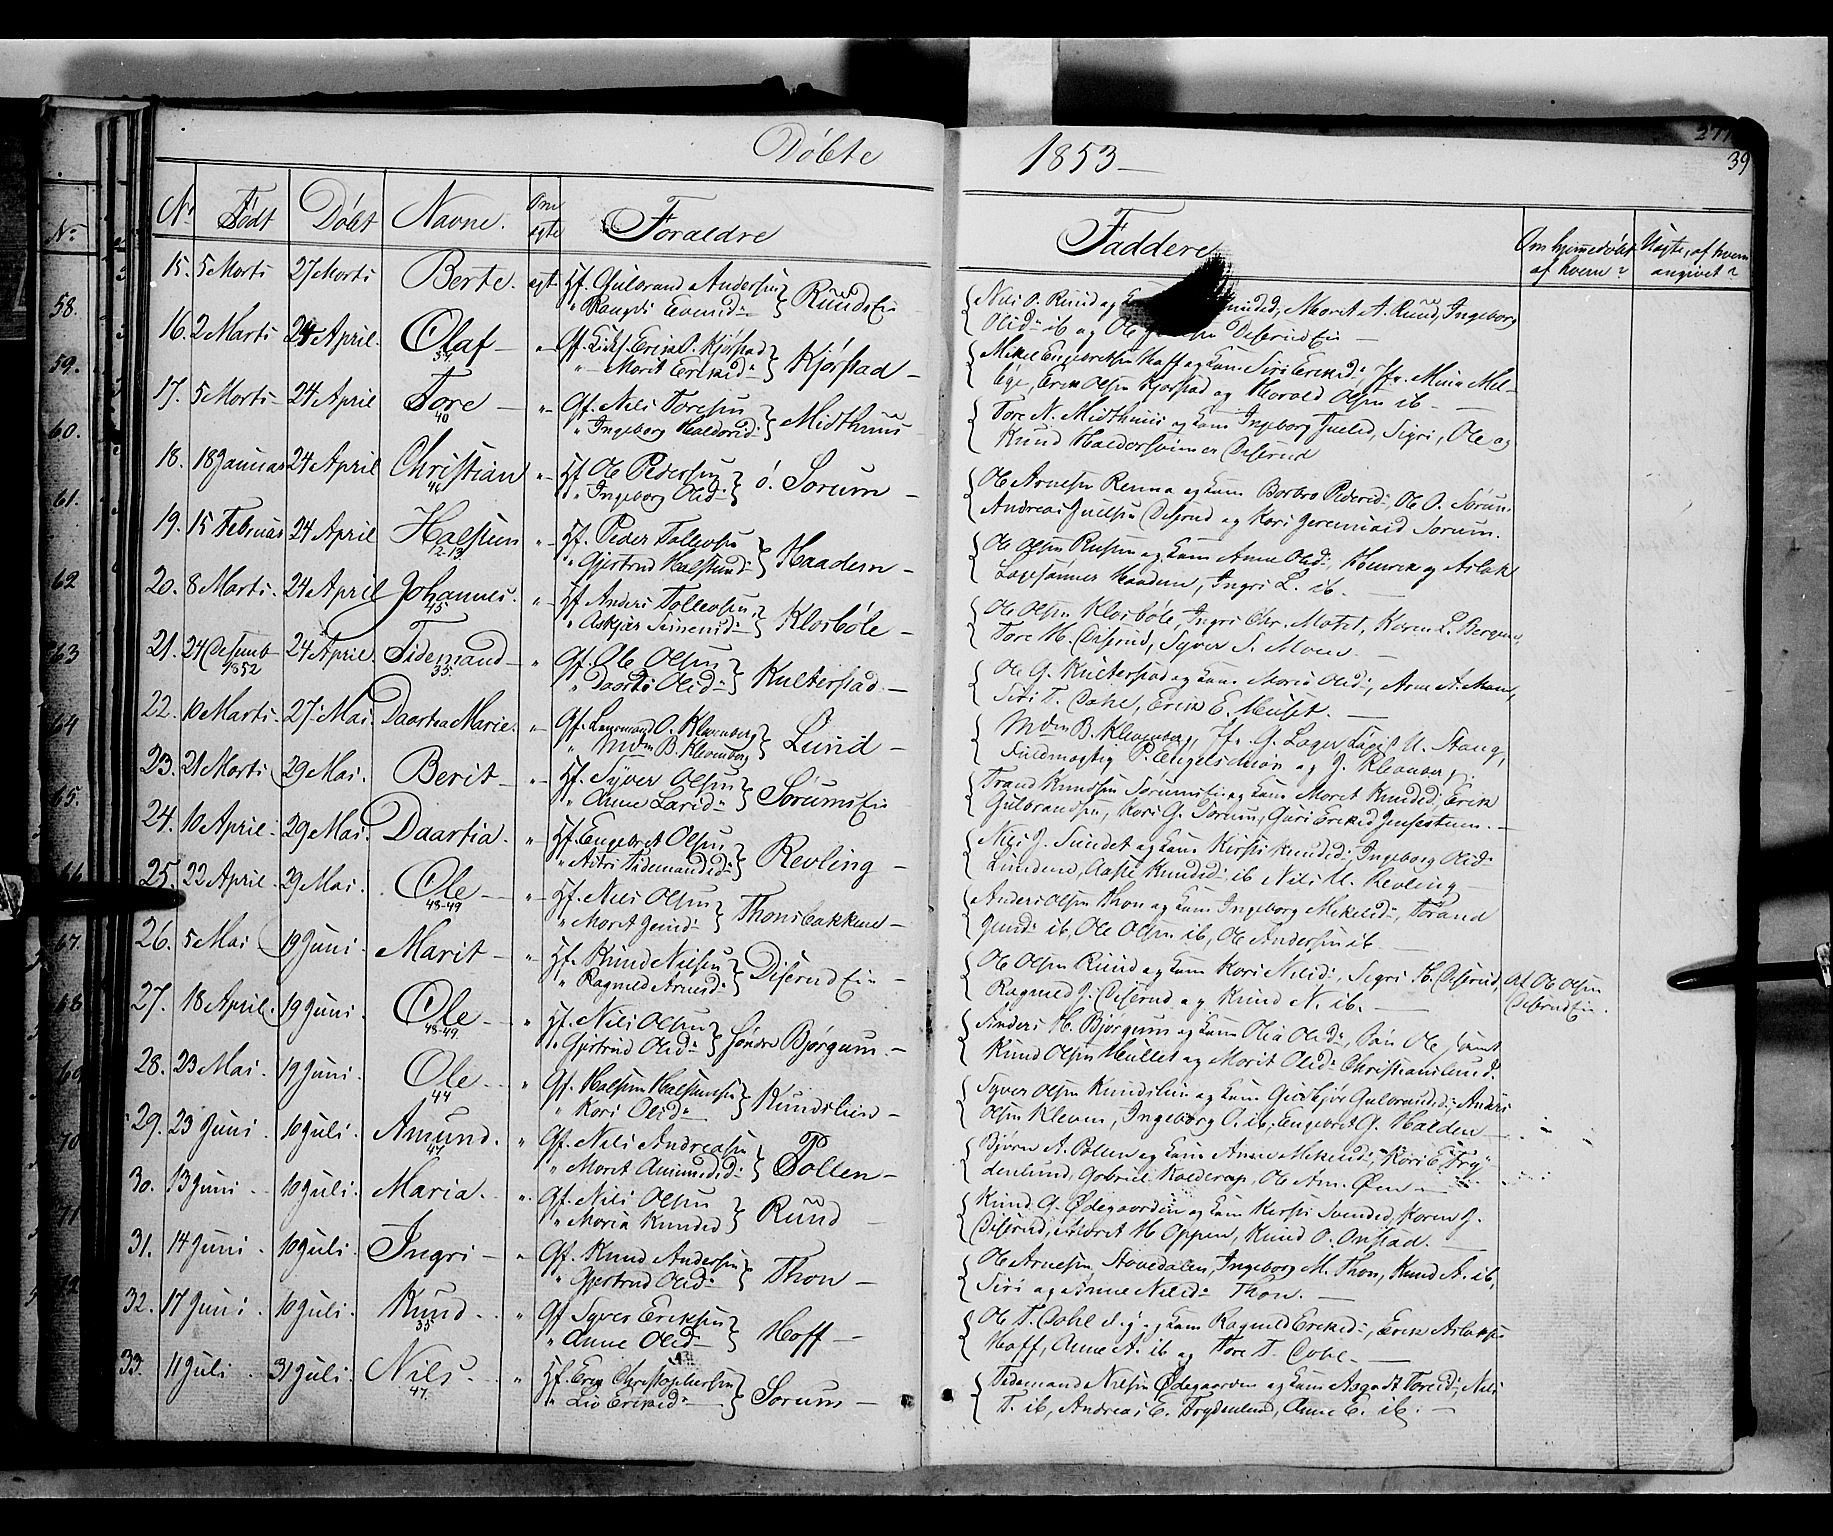 Døbte
1853 —
39
Nr Født Døbt Navne. Om ægte Foraldre
Faddere Om hjemmedøbt af hvem? Uægte, af hvem angivet?
15. 5 Marts 27 Marts Berte. ægt. Hf. Gulbrand Andersen Ruuds Ei
Nils O. Ruud og Knudsd: Marit A. Ruud, Ingeborg
Olsd: ib og Ole Diserud Ei —
16. 2 Marts 24 April. Olaf — " Erik O. Kjørstad
" Marit Eriksd: Kjørstad —
Mikel Engebretsen Hoff og Kone Siri Eriksd:
Erik Olsen Kjørstad og Harald Olsen ib. —
17. 5 Marts — 24 April Tore — 40 " Gf. Nils Toresen
" Ingeborg Haldorsd: Midthuus
Tore N. Midthuus og Kone Ingeborg Juelsd, Sigri, Ole og
Knud Haldorssønner Diserud
18. 18 Januar 24 April Christian " Hf. Ole Pedersen
" Ingeborg Olsd: Ø. Sorum —
Ole Arnesen Renna og Kone Borbro Pedersd: Ole O. Sørum
Andreas Juelsen Diserud og Kari Jeremiasd Sorum.
19. 15 Februar 24 April Halsten 12-13 " Hf. Peder Tollevsen
" Gjertrud Halstensd: Haadem —
Ole Olsen og Kone Anne Olsd: Henrik og Aslak
Haadem, Ingri L. ib. —
20. 8 Marts. 24 April Johannes. 45 " Hf. Anders Tollevsen
" Askjær Klosbøle —
Ole Olsen Klosbøle, Ingri Chr. Karen L. Bergum,
Tore H. Diserud, Syver S. Moen. —
21. 24 Desemb 1852 24 April. Tidemand — 35. " Gf. Ole Olsen
" Daarte Olsd: Kulterstad. —
Ole G. Kulterstad og Kone Marit Olsd:, Arne A. Moen,
Siri T. Dahl, Erik E. —
22. 10 Marts. 27 Mai. Daartea Marie. " Gf. O. Klevenberg
" Mdm B. Klevenberg Lund —
Mdm B. Klevenberg, G. U. Stang,
Fuldmægtig P. og J. Klevenberg.
23. 21 Marts 29 Mai. Berit — " Hf. Syver Olsen
" Anne Larsd: SørumsEi
Trand Knudsen Sørumsei og Kone Marit Knudsd:, Erik
Gulbrandsen, Kari G. Sorum, Guri Eriksd —
24. 10 April. 29 Mai. Daartia. " Hf. Engebret Olsen
" Tidemandsd: Revling —
Nils J. Sundet og Kone Kirsti Knudsd:, Ingeborg Olsd:
Lundene, Aase Knudsd: ib Nils U. Revling —
25. 22 April. 29 Mai. Ole — 48-49 " Hf. Nils Olsen
" Marit Thonsbakken —
Anders Olsen Thon og Kone Ingeborg Mikelsd:, Torand
ib, Ole Olsen ib, Ole Andersen ib. —
26. 5 Mai 19 Juni. Marit — " Hf. Knud Nilsen
" Ragnild Arnesd: Diserud Ei —
Ole Olsen Ruud og Kone Kari Nilsd:, Sigri K. Diserud,
Ragnild J. Diserud og Knud N. ib. —
af Ole Olsen Diserud Ei.
27. 18 April. 19 Juni. Ole — 48-49. " Hf. Nils Olsen
" Gjertrud Olsd: Søndre Bjørgum. —
Anders H. Bjørgum og Kone Olia Olsd: Ole
Knud Olsen og Marit Olsd: Christianslund.
28. 23 Mai. 19 Juni. Ole — 44 " Gf. Halsten Halstensen
" Kari Olsd: Kundslien —
Syver Olsen Kundslien og Kone Gulbrandsd:, Anders
Olsen Kleven, Ingeborg O. ib, Engebret G. Halden —
29. 23 Juni. 10 Juli. Amund. 47 " Gf. Nils Andreasen
" Marit Amundsd: Pollen —
Bjørn A. Pollen og Kone Anne Mikelsd:, Kari E. Fry-
denlund, Gabriel Kolderup, Ole Am. Øen —
30. 13 Juni. 10 Juli. Maria. " Gf. Nils Olsen
" Maria Knudsd: Ruud
Knud G. Ødegaarden og Kone Kersti Svendsd, Karen J.
Diserud, Marit H. Oppen, Knud O. Onstad. —
31. 14 Juni. 10 Juli. Ingri — " Gf. Knud Andersen
" Gjertrud Olsd: Thon —
Ole Arnesen Stavedalen, Ingeborg M. Thon, Knud A. ib,
Siri og Anne Nilsd: Thon. —
32. 17 Juni. 10 Juli. Knud. 35 " Gf Syver Eriksen
" Anne Olsd: Hoff —
Ole T. Dahl og Kone Ragnild Eriksd:, Erik Aslaks:
Hoff, Anne A. ib og Tore T. Dahl. —
33. 11 Juli. 31 Juli. Nils. 47. " Hf. Erik Christophersen
" Liv Eriksd: Sorum —
Tidemand Nilsen Ødegaarden og Kone Aagodt Toresd:, Nils
T. ib, Andreas E. Frydenlund, Anne E. ib. —
Nr
58.
59.
60.
61.
62
63
64
65.
66
67.
68
69
70
71
72